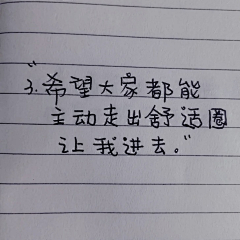 "3.希望大家都能
主动走出舒适圈
让我进去。"